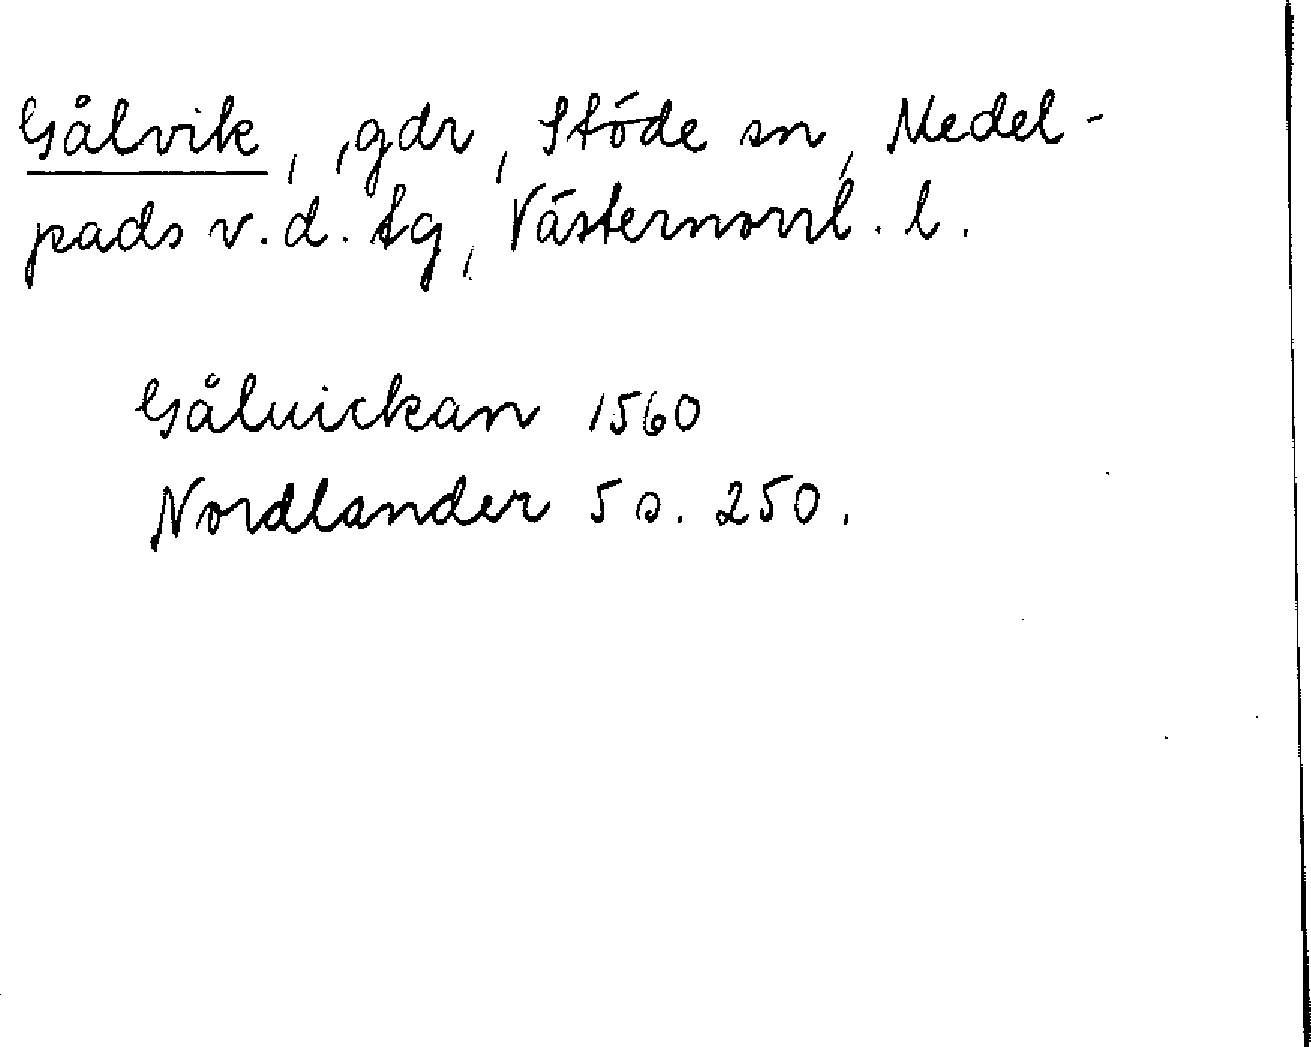 Gålvik, ,gdr, Stöde sn, Medel-
pads v.d. tg, Västernorrl. l.
Gåluickan 1560
Nordlander 5 s. 250.